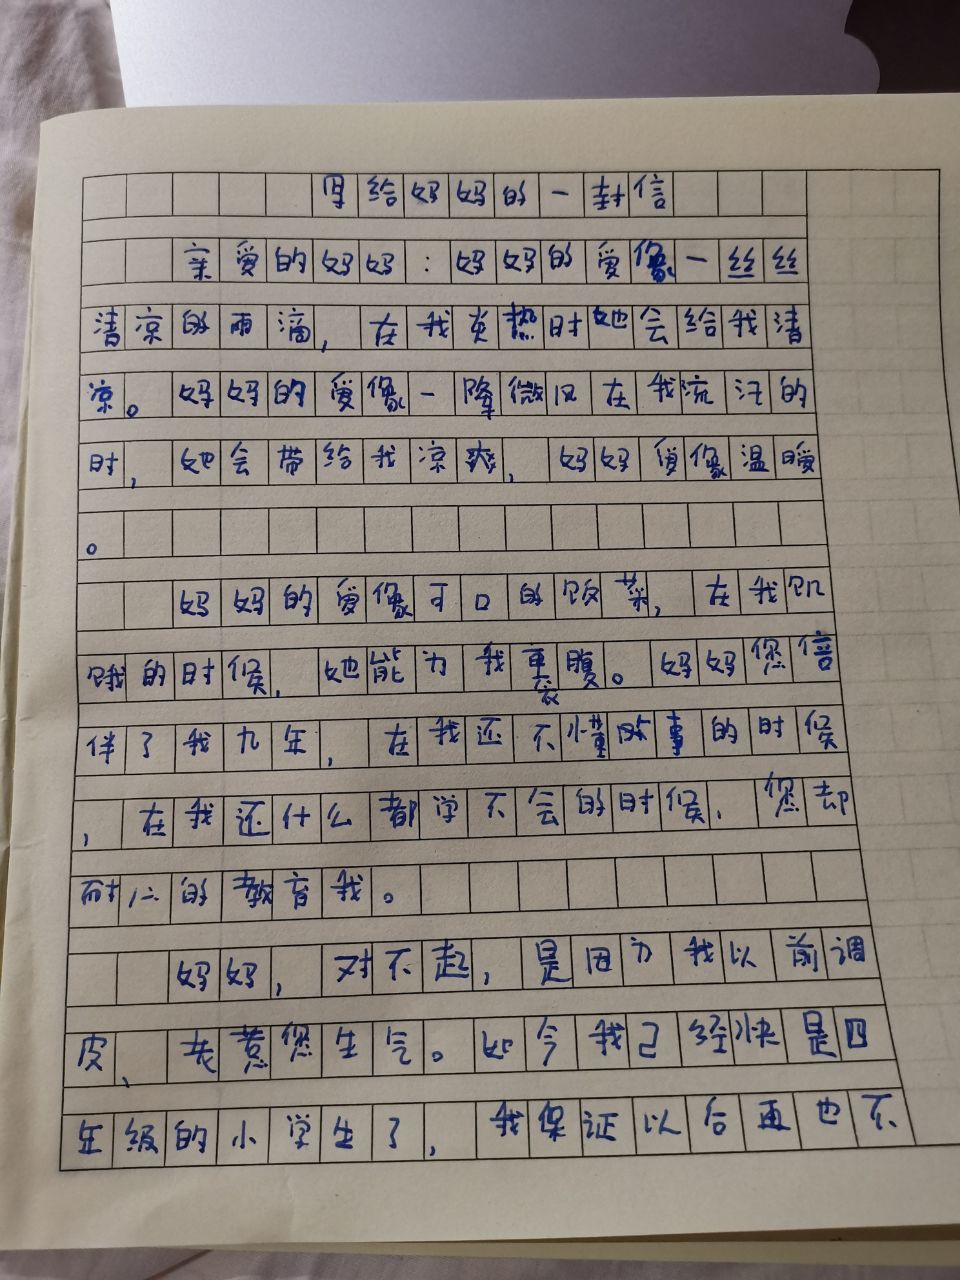 给妈妈的一封信
亲爱的妈妈：妈妈的爱像一丝丝
清凉的雨滴，在我炎热时她会给我清
凉。妈妈的爱像一降微风在我流汗的
时，她会带给我凉爽，妈妈爱像温暖
。
妈妈的爱像可口的饭菜，在我饥
饿的时候，她能为我裹腹。妈妈您倍
伴了我九年，在我还不懂事的时候
，在我还什么都学不会的时候，您却
耐心的教育我。
妈妈，对不起，是因为我以前调
皮、惹您生气。如今我已经快是四
年级的小学生了，我保证以后再也不